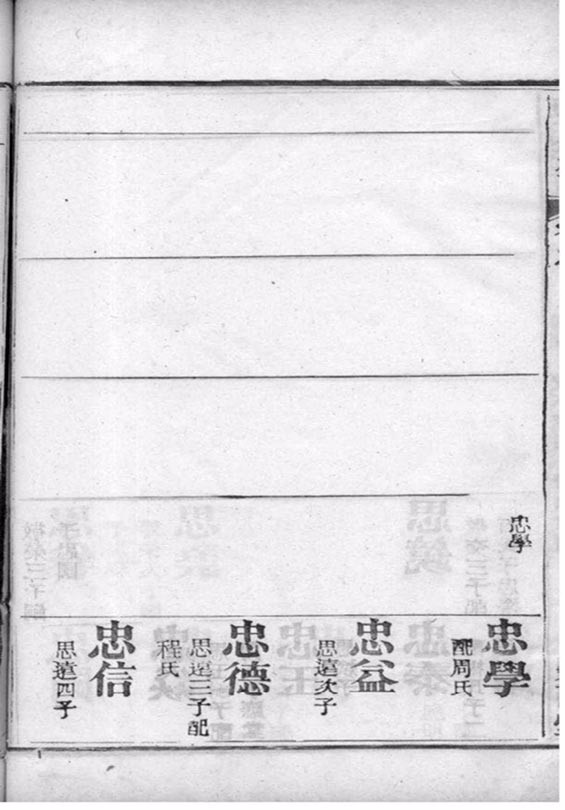 忠學
忠學
配周氏
忠益
思遠次子
忠德
思遠三子配
程氏
忠信
思遠四子